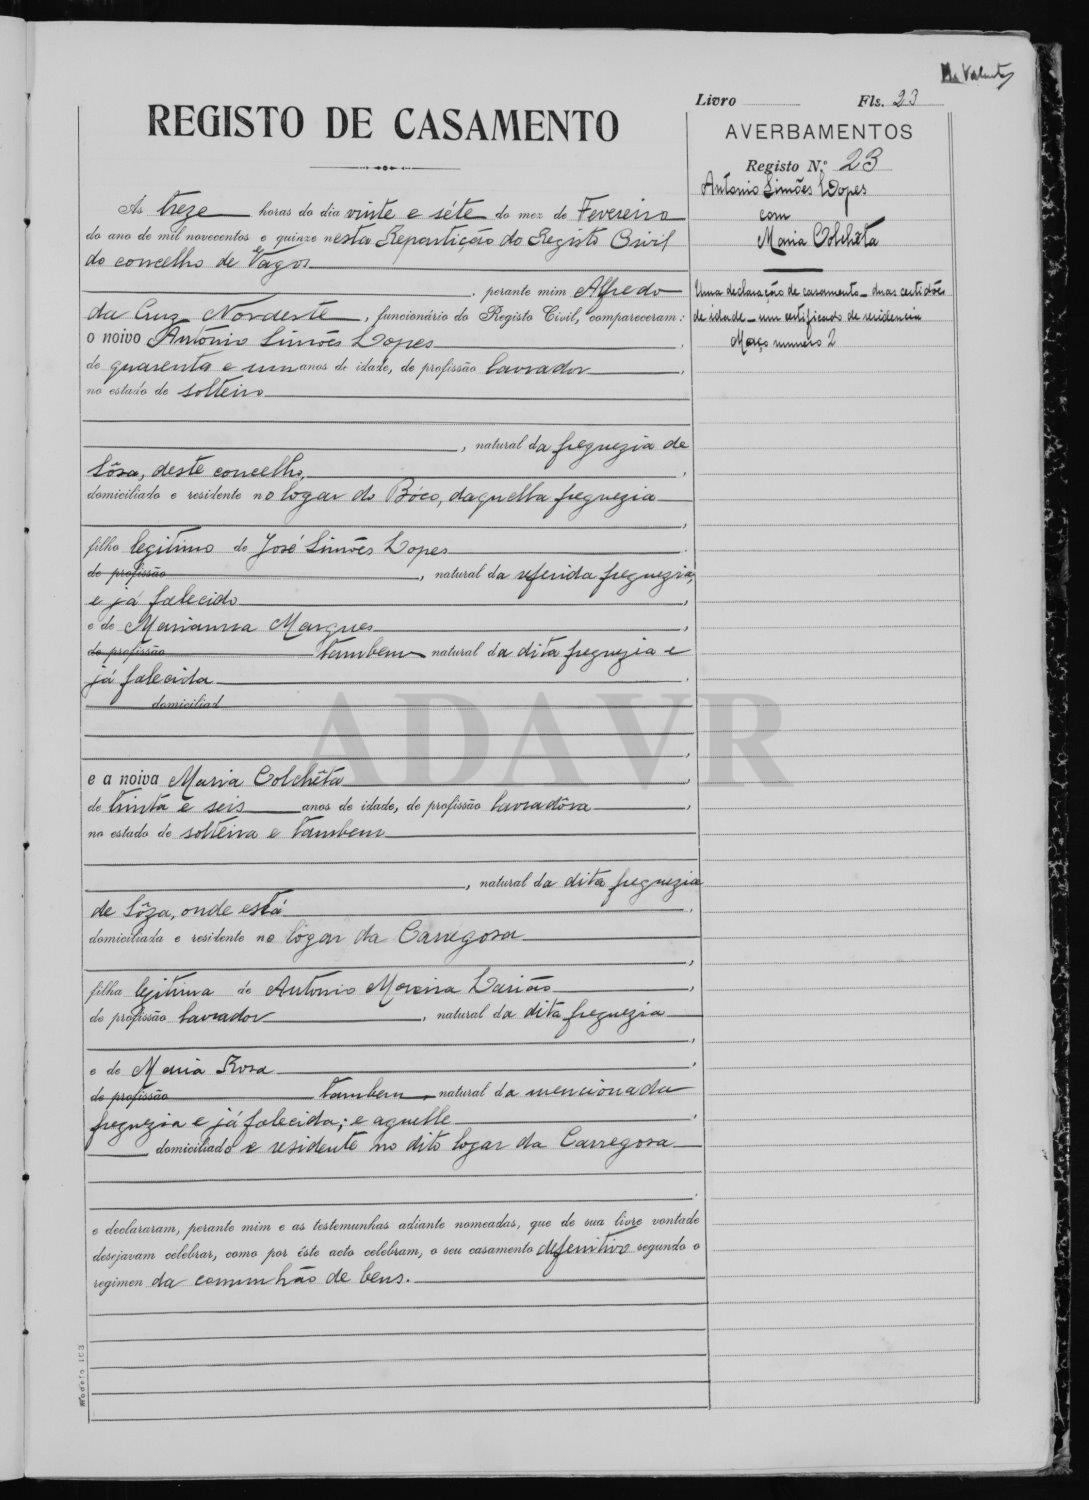 Livro Fls. 23
REGISTO DE CASAMENTO
AVERBAMENTOS
Registo N.º 23
Antonio Simões Lopes
com
Maria Colchêta
Uma declaração de casamento - duas certidões
de idade - um certificado de residencia
Março numero 2
As treze horas do dia vinte e séte do mez de Fevereiro
do ano de mil novecentos e quinze nesta Repartição do Registo Civil
do concelho de Vagos
, perante mim Alfredo
da Cruz Nordeste, funcionário do Registo Civil, compareceram:
o noivo António Simões Lopes
de quarenta e um anos de idade, de profissão lavrador,
no estado de solteiro
, natural da freguezia de
Sôsa, deste concelho,
domiciliado e residente no logar do Bóco, daquella freguezia
filho legitimo de José Simões Lopes
de profissão , natural da referida freguezia,
e já falecido,
e de Marianna Marques,
de profissão tambem natural da dita freguezia e
já falecida
domiciliad
ADAVR
e a noiva Maria Colchêta
de trinta e seis anos de idade, de profissão lavradôra,
no estado de solteira e tambem
, natural da dita freguezia
de Sôza, onde está
domiciliada e residente no lógar da Carregosa
filha legitima de Antonio Moreira Larião,
de profissão lavrador, natural da dita freguezia
e de Maria Rosa
de profissão tambem natural da mencionada
freguezia e já falecida; e aquelle
domiciliado e residente no dito logar da Carregosa
e declararam, perante mim e as testemunhas adiante nomeadas, que de sua livre vontade
desejavam celebrar, como por êste acto celebram, o seu casamento defenitivo segundo o
regimen da comunhão de bens.
Modelo 103